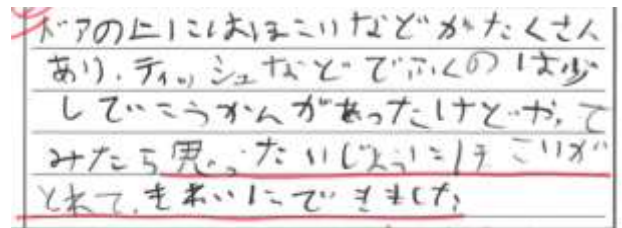 ドアの上にはほこりなどがたくさん
あり、ティッシュなどでふくのは少
しでいこうかんがあったけど、やって
みたら思ったいじょうにほこりが
とれて、きれいにできました。